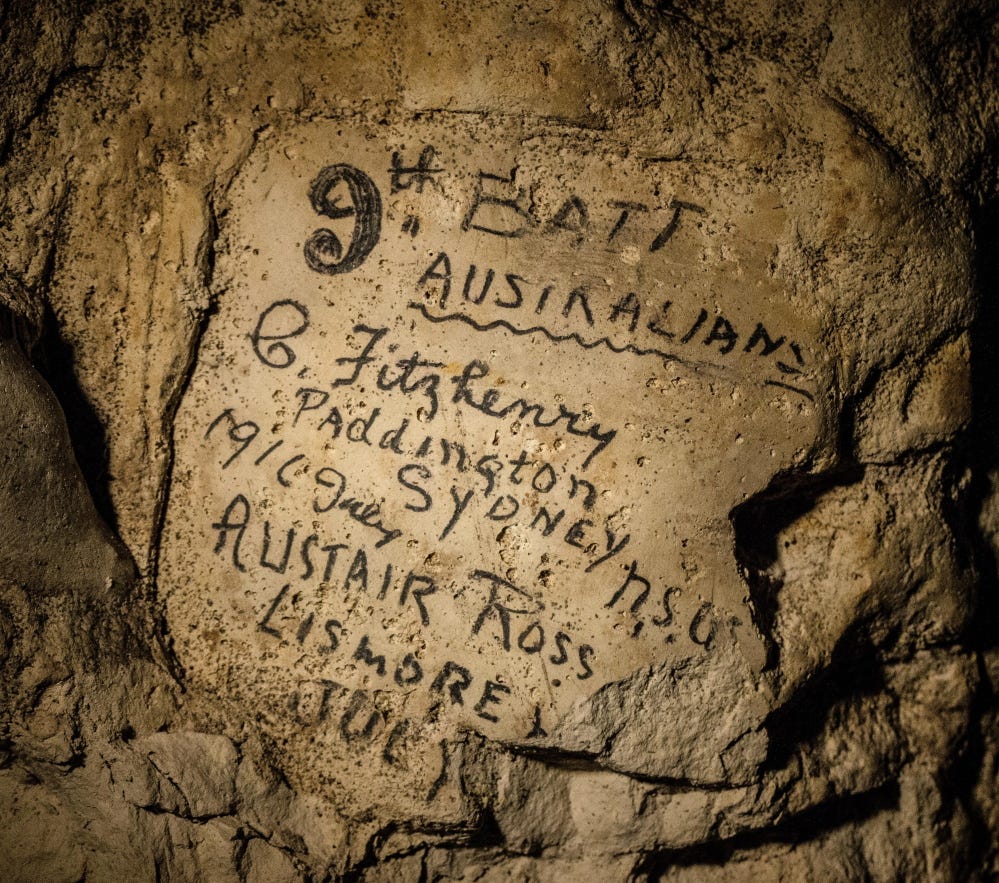 9th. BATT
AUSTRALIANS
C. Fitzhenry
Paddington
SYDNEY N.S.W
1916 July
ALISTAIR ROSS
LISMORE
JULY